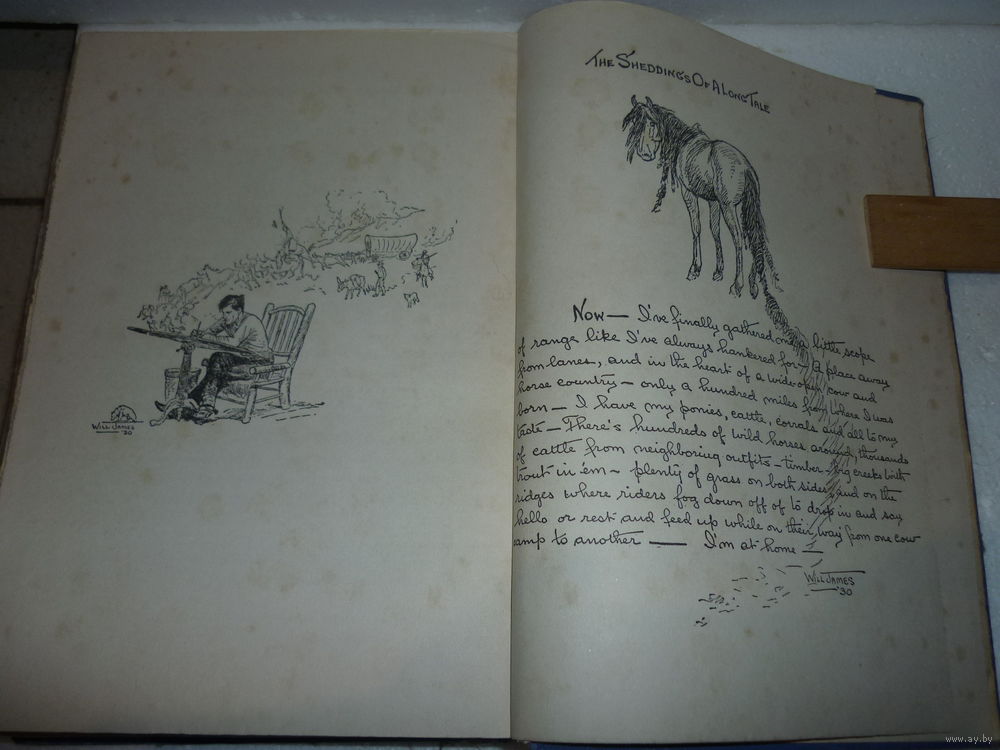 WILL JAMES
'30
THE SHEDDINGS OF A LONG TALE
Now — I've finally gathered me a little scope
of range like I've always hankered for — a place away
from lanes, and in the heart of a wide open cow and
horse country — only a hundred miles from where I was
born — I have my ponies, cattle, corrals and all to my
taste — There's hundreds of wild horses around, thousands
of cattle from neighboring outfits — timber — big creeks with
trout in 'em — plenty of grass on both sides, and on the
ridges where riders fog down off of to drop in and say
hello or rest and feed up while on their way from one cow
camp to another — I'm at home —
WILL JAMES
'30
www.ay.by